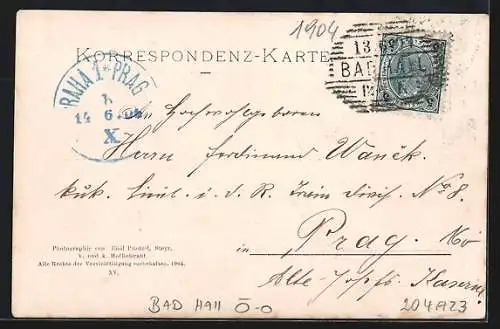 1904
KORRESPONDENZ-KARTE
13
BAD HALL
PRAHA 1 PRAG
14 6
X
An Hochwohlgeboren
Herrn Ferdinand Wanĕk
kuk. i. d. R. Train Divis. No 8.
in Prag. No
Alte Josefs Kaserne
Photographie von Emil Prietzel, Steyr,
k. und k. Hoflieferant
Alle Rechte der Vervielfältigung vorbehalten. 1904.
XV.
BAD HAll Ö-O
204A23